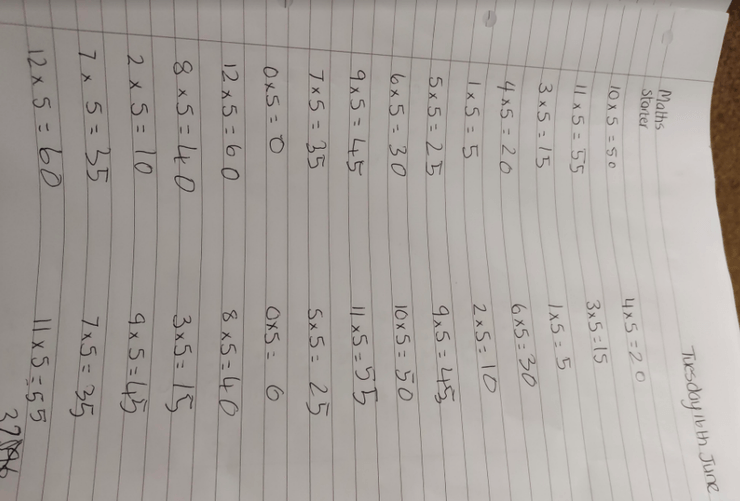 Tuesday 16th June
Maths
starter
10 x 5 = 50
11 x 5 = 55
3 x 5 = 15
4 x 5 = 20
1 x 5 = 5
5 x 5 = 25
6 x 5 = 30
9 x 5 = 45
7 x 5 = 35
0 x 5 = 0
12 x 5 = 60
8 x 5 = 40
2 x 5 = 10
7 x 5 = 35
12 x 5 = 60
4 x 5 = 20
3 x 5 = 15
1 x 5 = 5
6 x 5 = 30
2 x 5 = 10
9 x 5 = 45
10 x 5 = 50
11 x 5 = 55
5 x 5 = 25
0 x 5 = 0
8 x 5 = 40
3 x 5 = 15
9 x 5 = 45
7 x 5 = 35
11 x 5 = 55